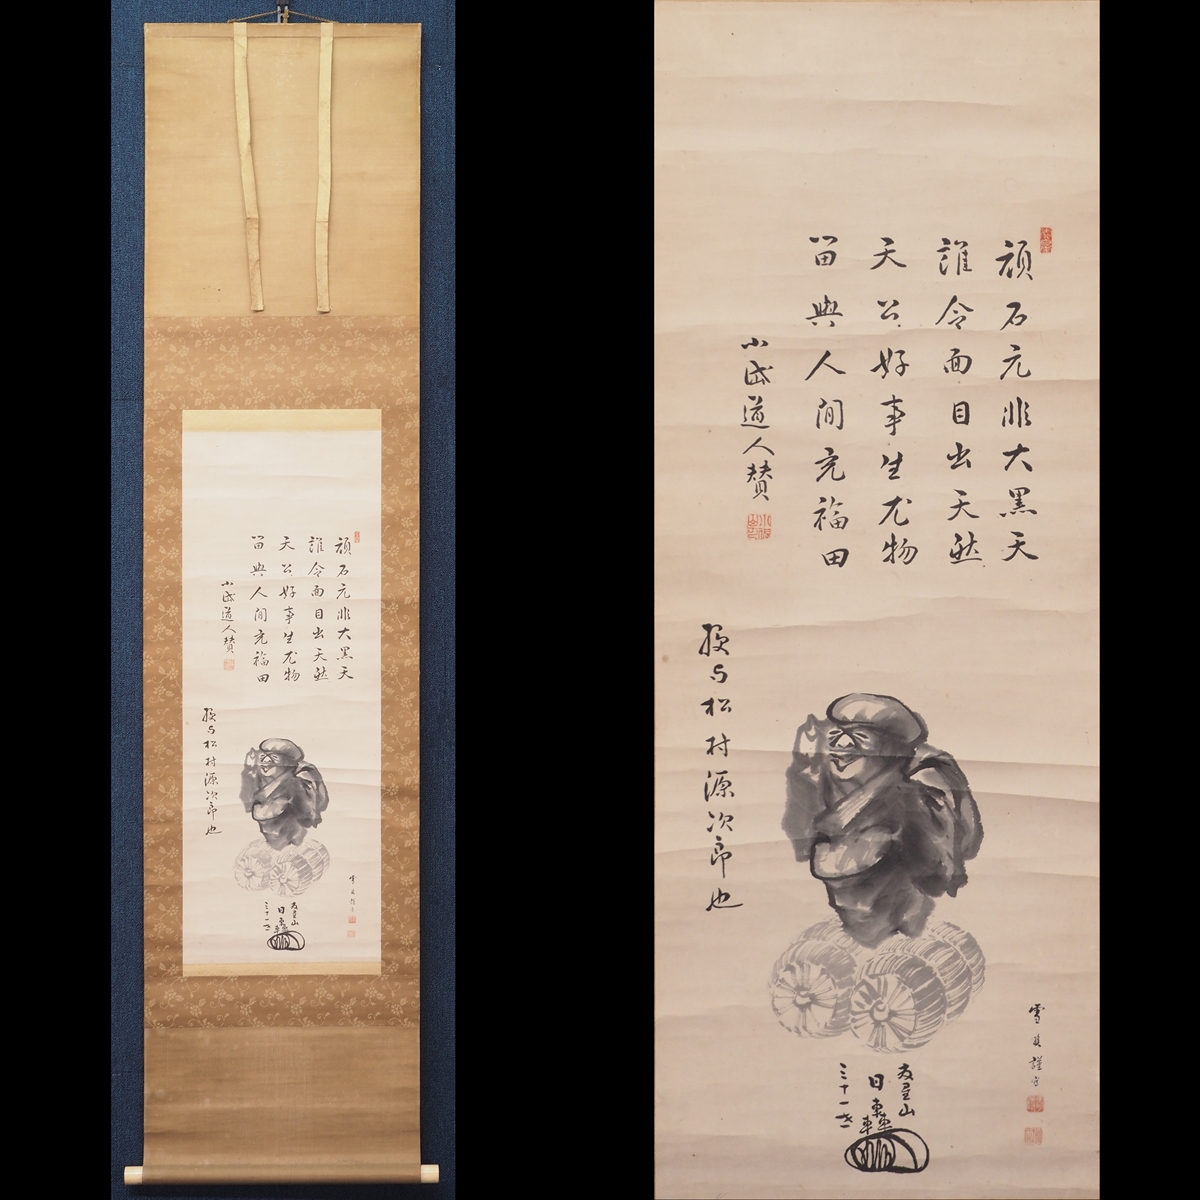 頑石元非大黒天
誰令面目出天然
天公好事生尤物
留與人間充福田
小岱道人賛
授与松村源次郎也
雪
謹写
山
日轟
三十一世